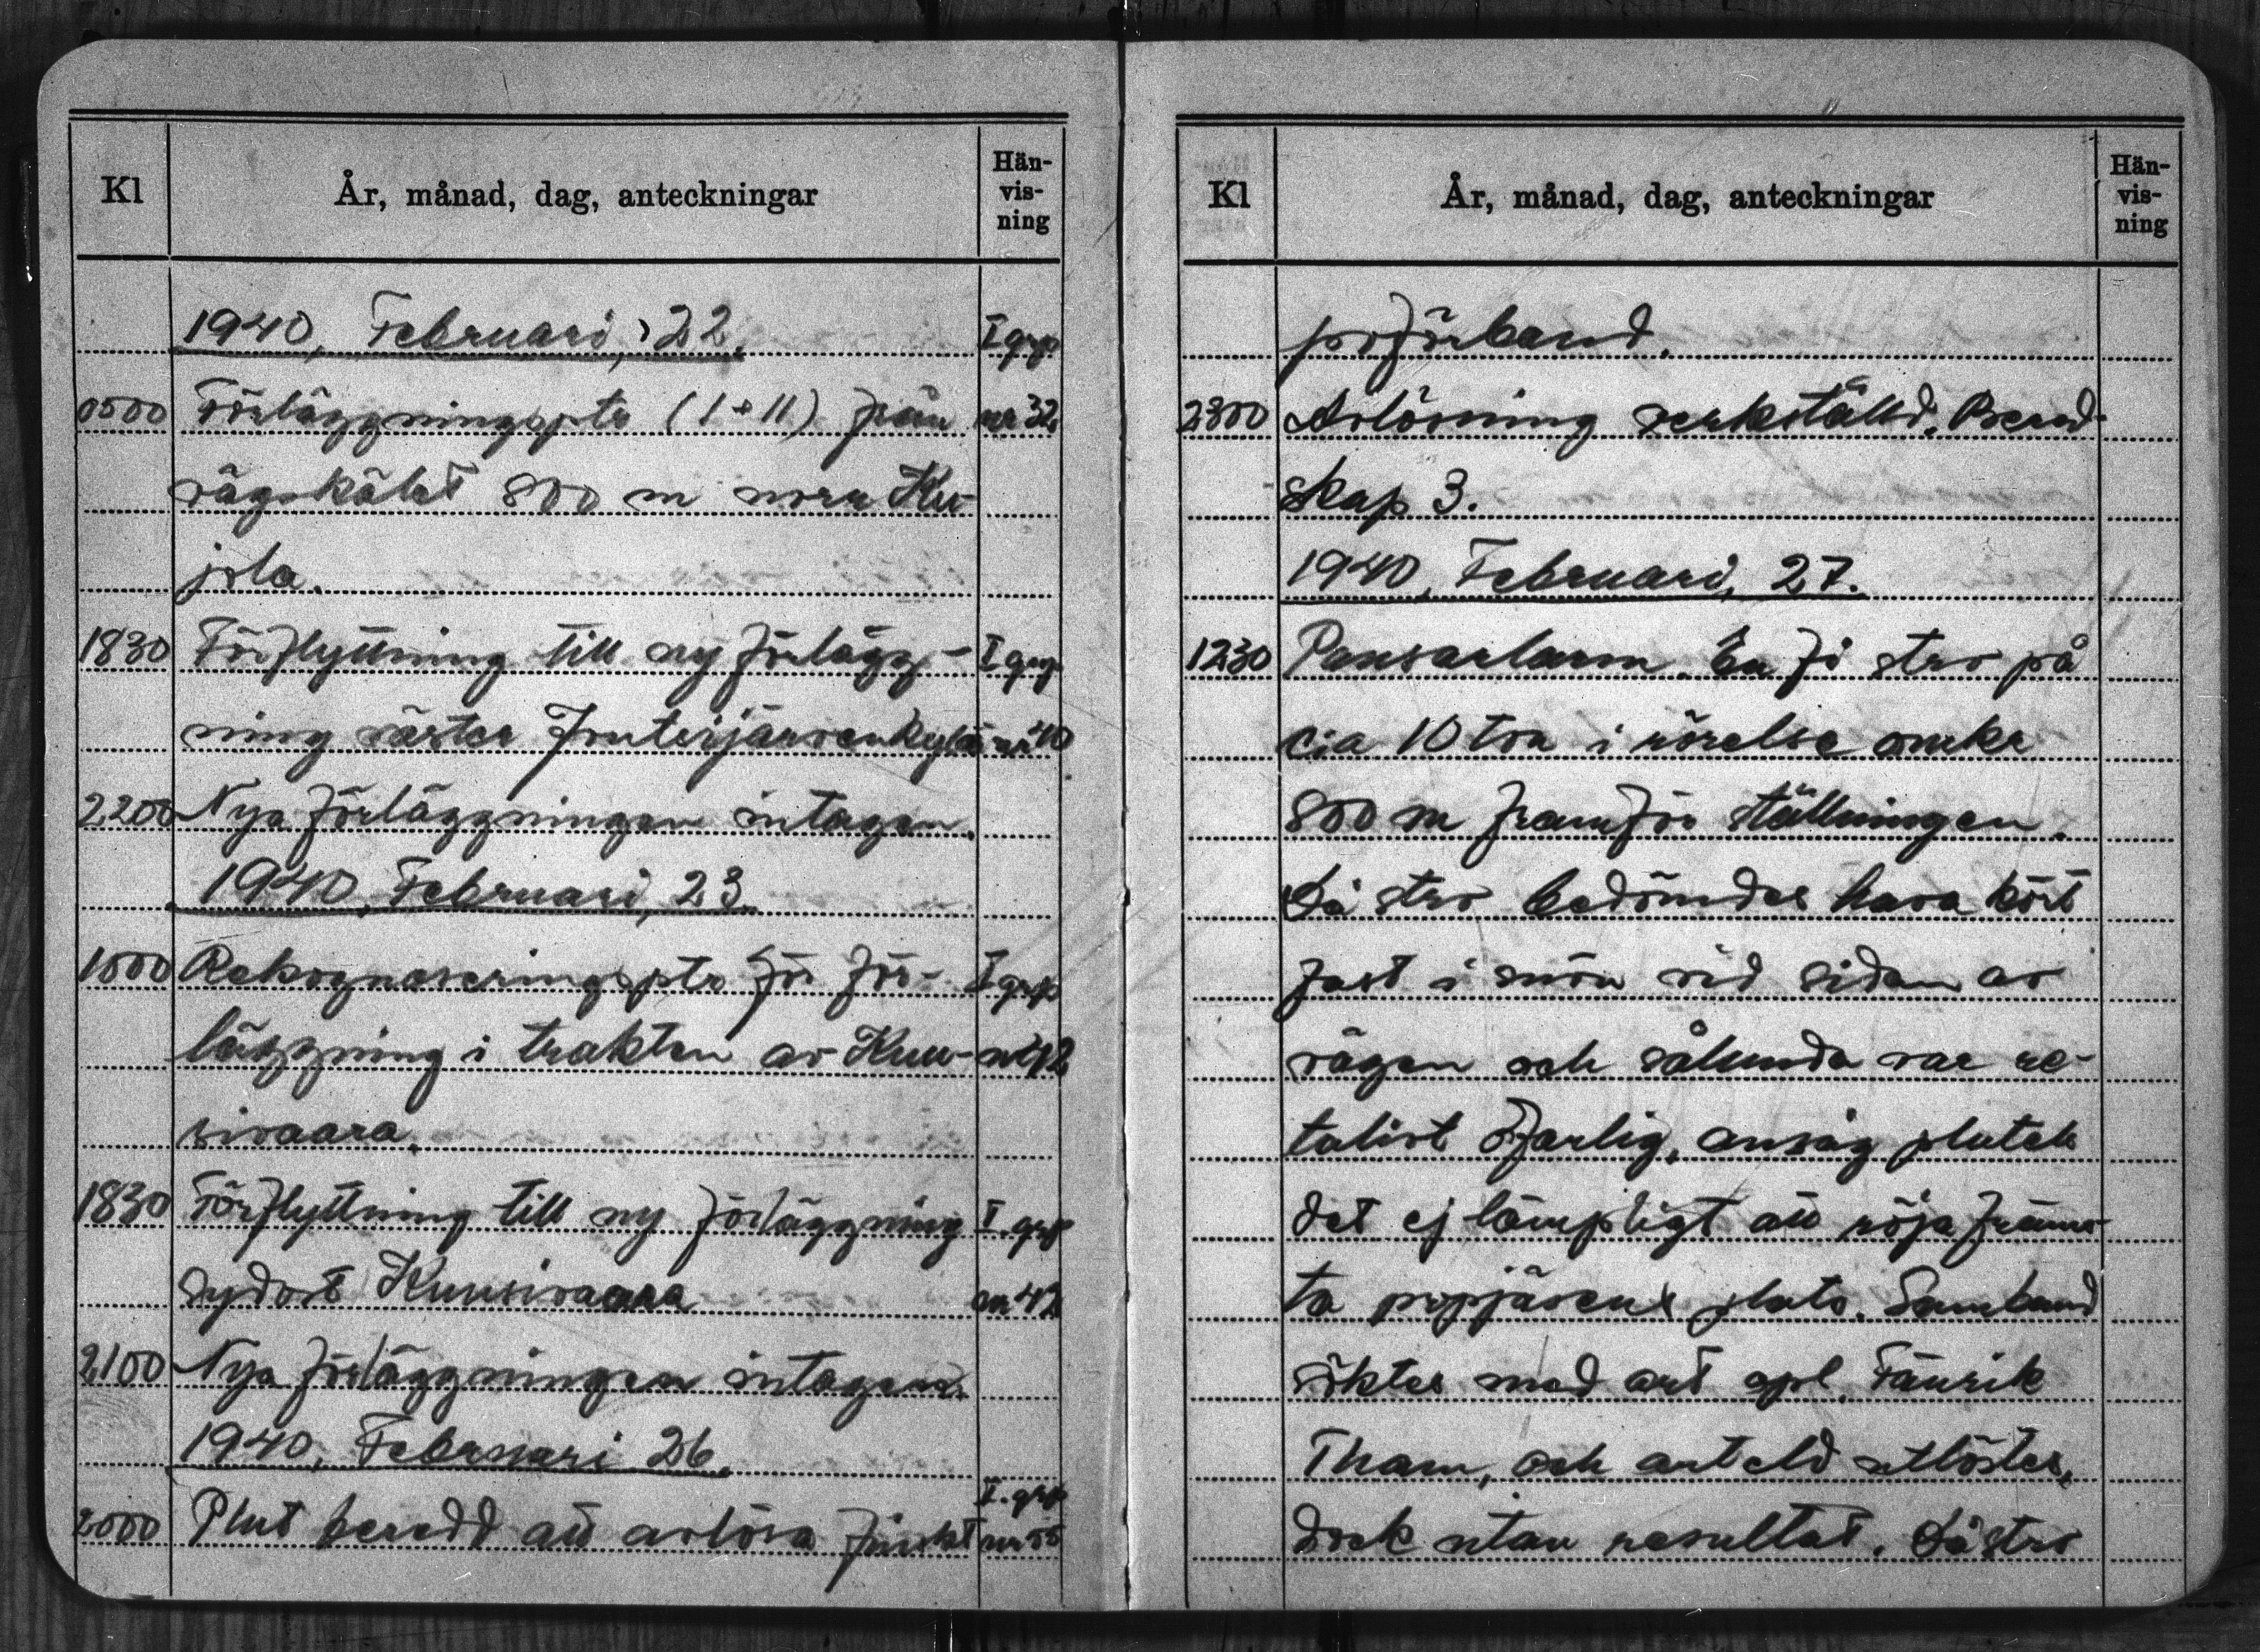 Kl År, månad, dag, anteckningar Hän-
vis-
ning
1940, Februari, 22. I grp
0500 Förläggningsptr (I + II) från nr 32.
vägskälet 800 m norr Ku-
jola.
1830 Förflyttning till ny förlägg- I grp
ning väster Joutsijärvenkylä nr 40
2200 Nya förläggningen intagen.
1940, Februari, 23.
1000 Rekognoseringsptr för för- I grp
läggning i trakten av Kuu- nr 42
sivaara.
1830 Förflyttning till ny förläggning I. grp
sydost Kuusivaara nr 42
2100 Nya förläggningen intagen.
1940, Februari 26.
I. grp
2000 Plut beredd att avlösa finskt nr 55
Kl År, månad, dag, anteckningar Hän-
vis-
ning
pvförband.
2300 Avlösning verkställd. Bered-
skap 3.
1940, Februari, 27.
1230 Pansarlarm. En fi strv på
c:a 10 ton i rörelse omkr
800 m framför ställningen.
Då strv bedömdes hava kört
fast i snön vid sidan av
vägen och sålunda var re-
lativt ofarlig, ansåg plutch
det ej lämpligt att röja främs-
ta pvpjäsens plats. Samband
söktes med art opl. Fänrik
Tham, och art eld utlöstes,
dock utan resultat. Då strv